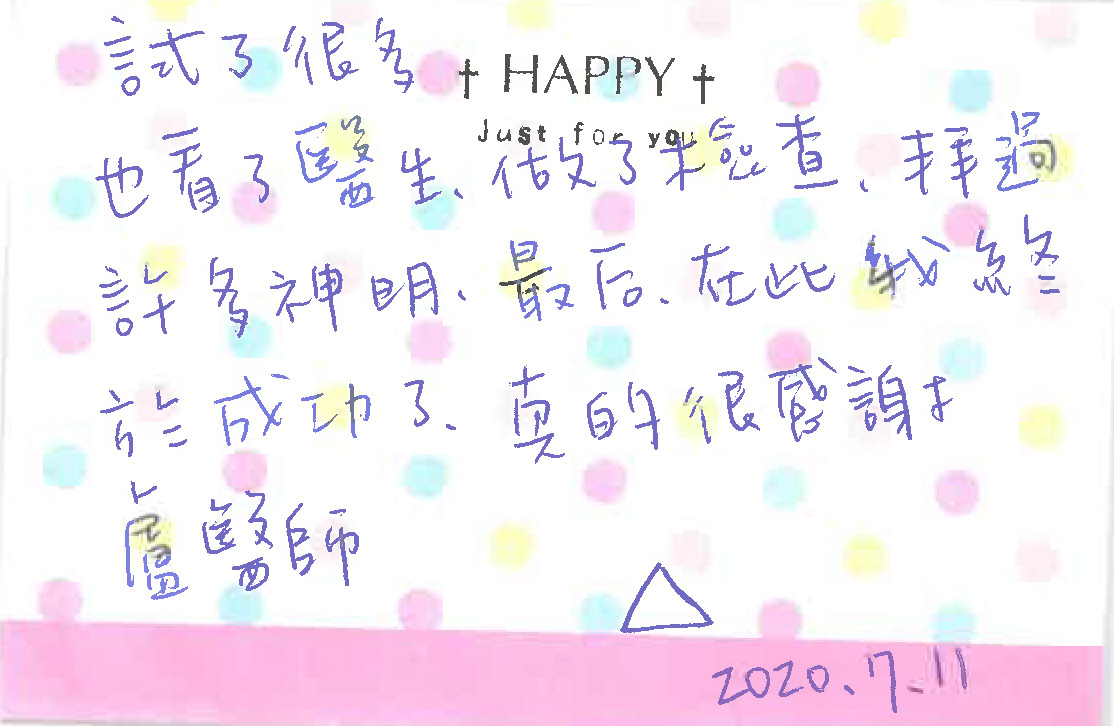 試了很多
† HAPPY †
Just for you
也看了醫生、做了檢查、拜過
許多神明、最后、在此我終
於成功了、真的很感謝
盧醫師
2020.7.11